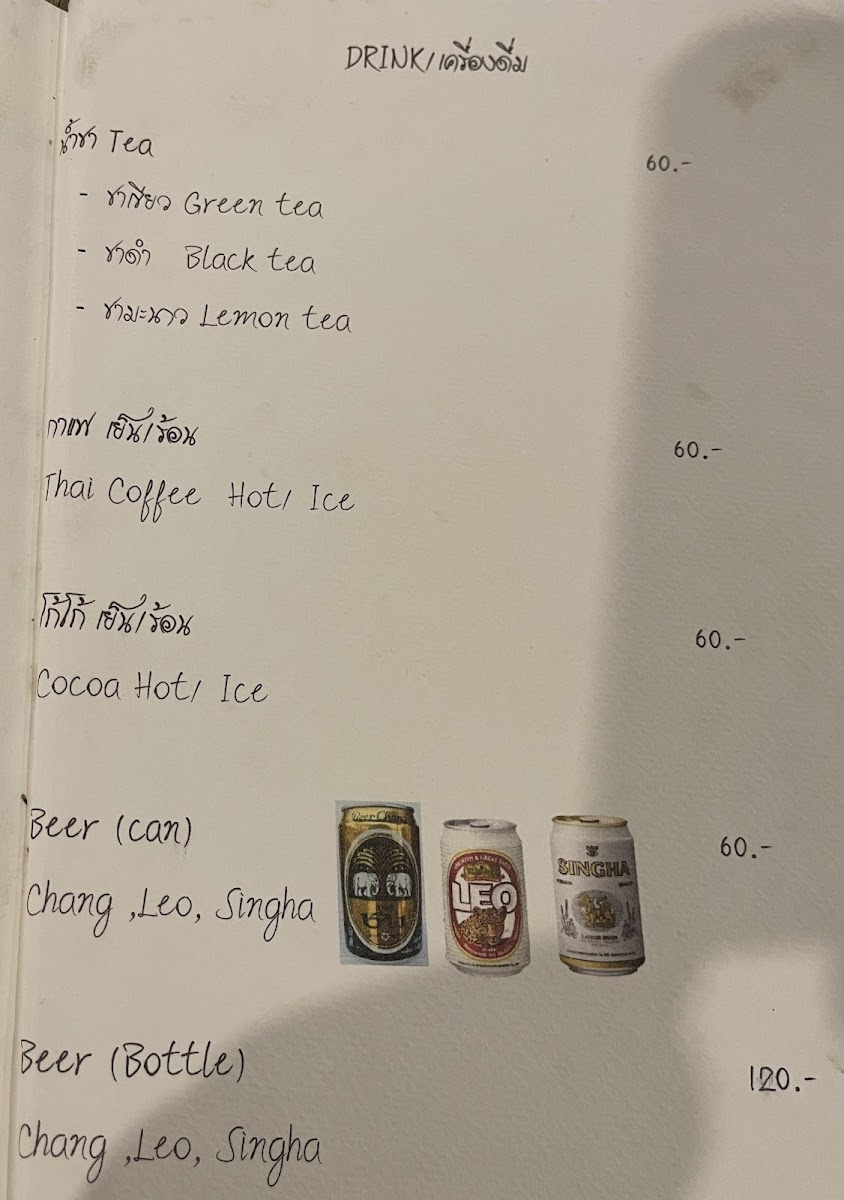 DRINK/เครื่องดื่ม
น้ำชา Tea 60.-
- ชาเขียว Green tea
- ชาดำ Black tea
- ชามะนาว Lemon tea
กาแฟ เย็น/ร้อน 60.-
Thai Coffee Hot/ Ice
โก้โก้ เย็น/ร้อน 60.-
Cocoa Hot/ Ice
Beer (can) 60.-
Chang ,Leo, Singha
Beer Chang
ช้าง
LEO
SINGHA
LAGER BEER
Beer (Bottle) 120.-
Chang ,Leo, Singha